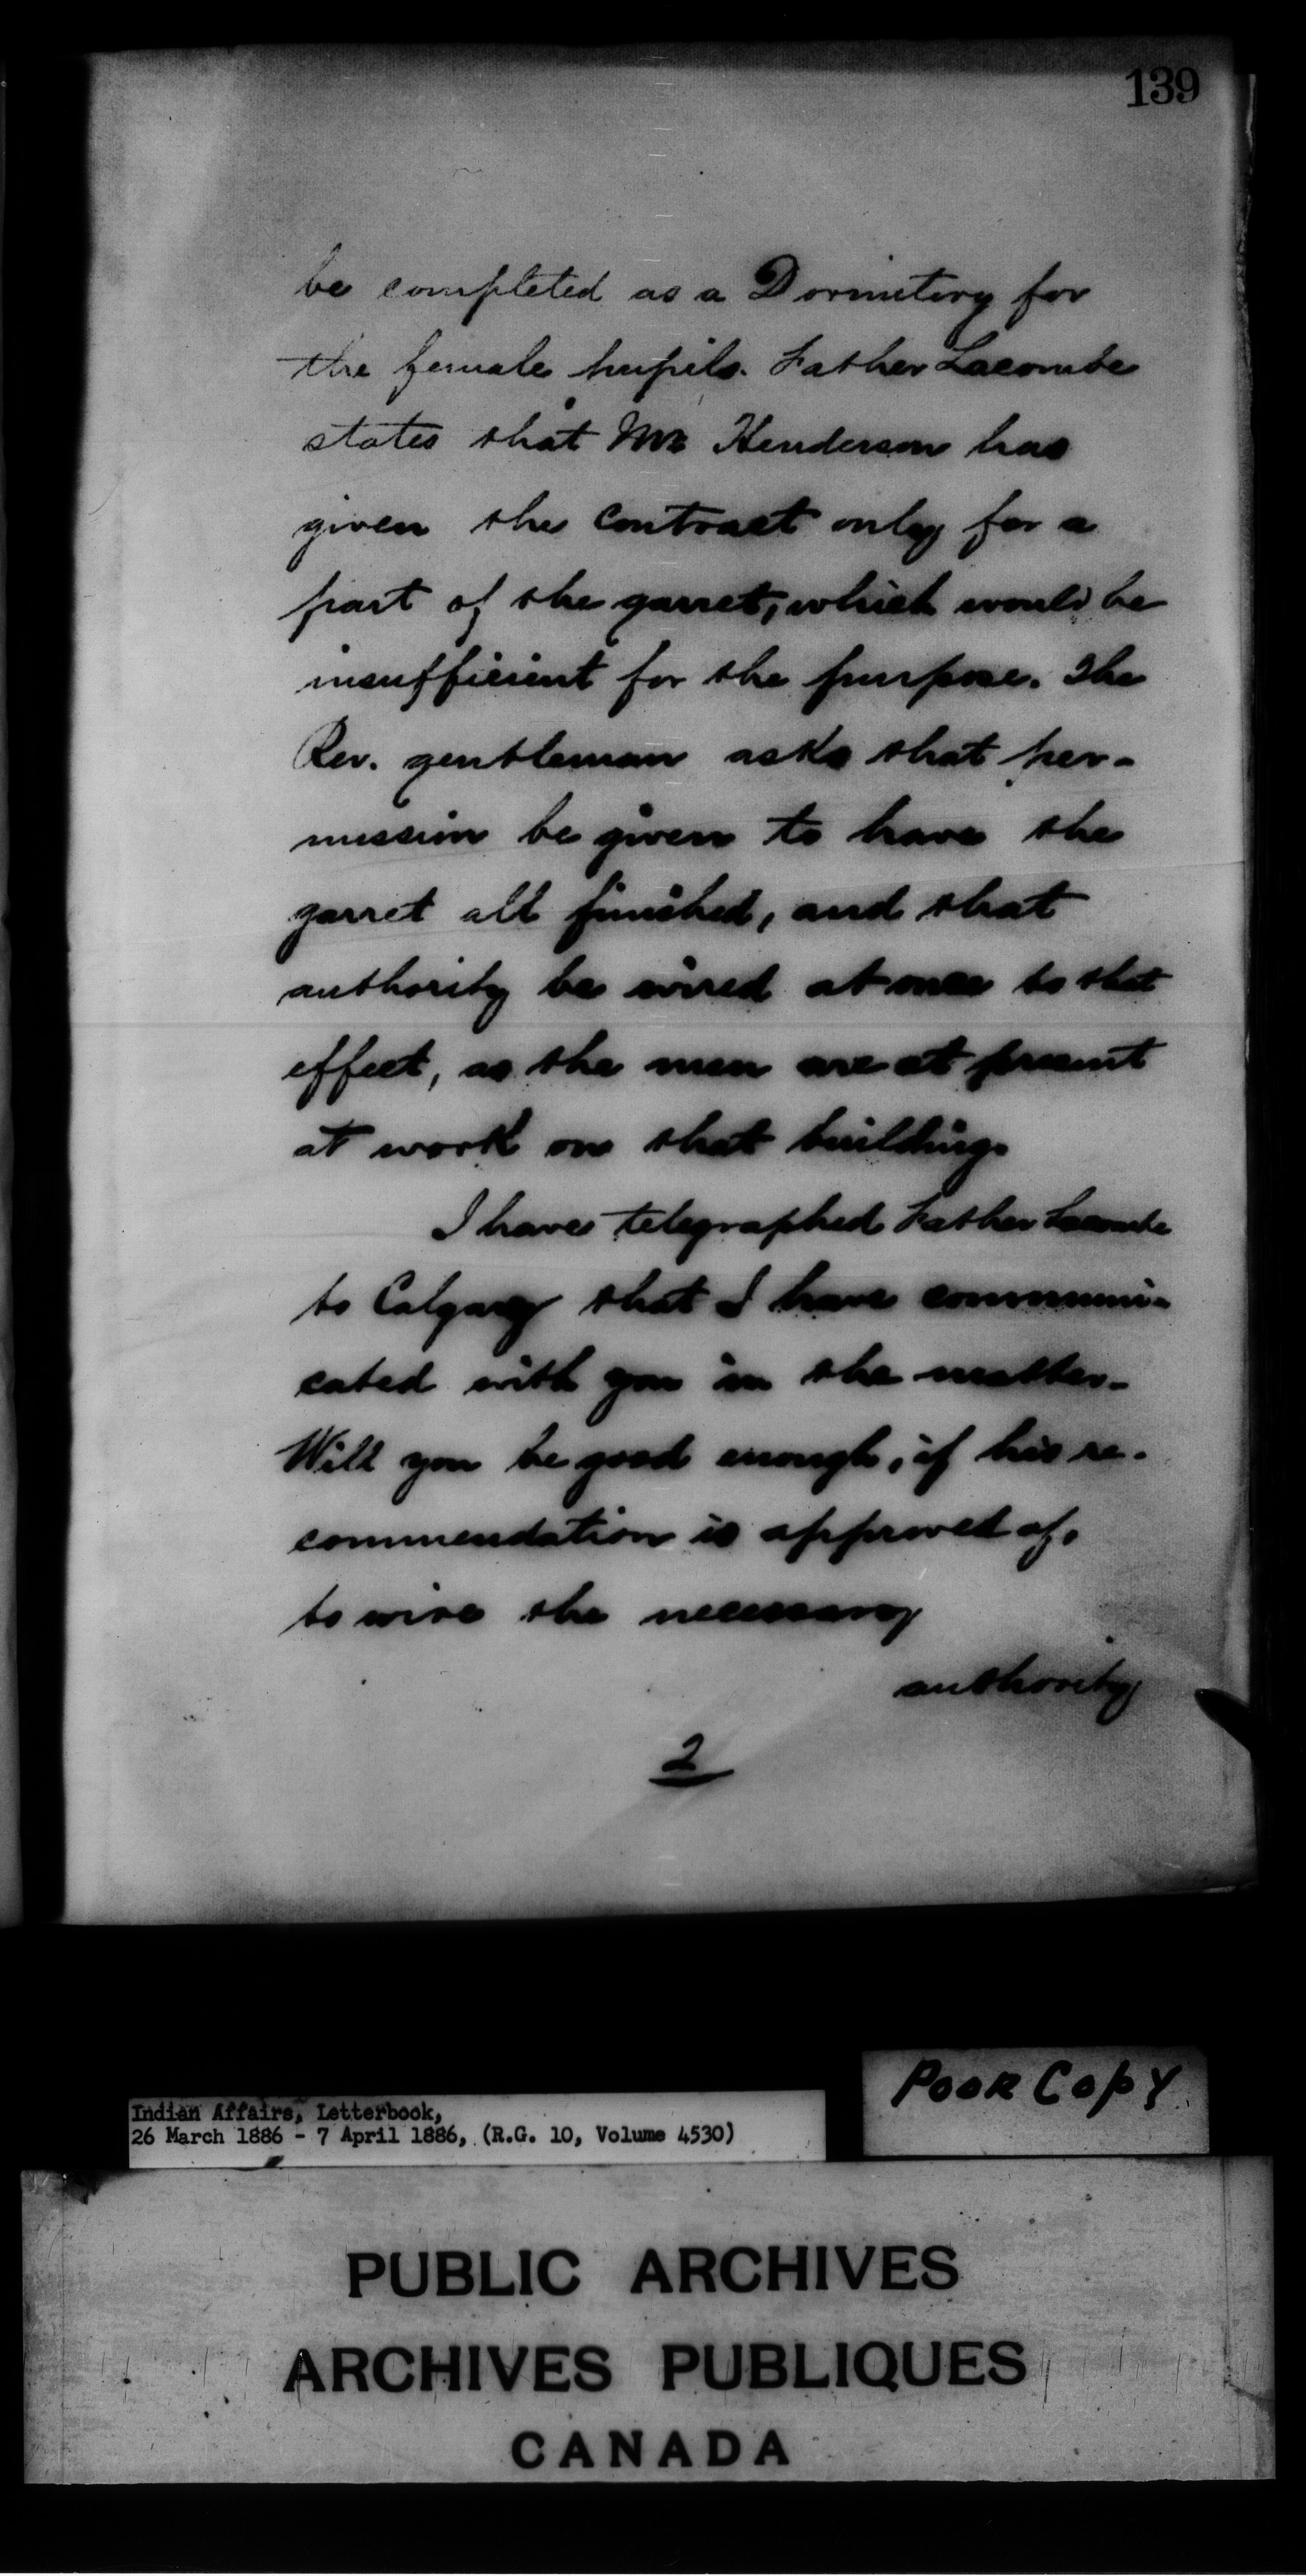 139
be completed as a Dormitory for
the female pupils. Father Lacombe
states that Mr Henderson has
given the contract only for a
part of the garret, which would be
insufficient for the purpose. The
Rev. gentleman asks that per-
mission be given to have the
garret all finished, and that
authority be wired at once to that
effect, as the men are at present
at work on that building.
I have telegraphed Father Lacombe
to Calgary that I have communi-
cated with you in the matter.
Will you be good enough, if his re-
commendation is approved of,
to wire the necessary
authority
2
Poor Copy
Indian Affairs, Letterbook,
26 March 1886 - 7 April 1886, (R.G. 10, Volume 4530)
PUBLIC ARCHIVES
ARCHIVES PUBLIQUES
CANADA